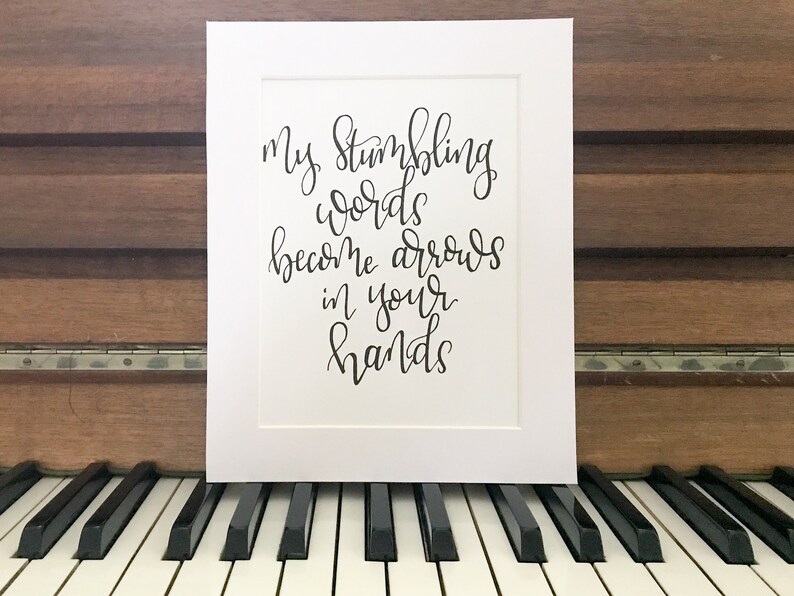 my stumbling
words
become arrows
in your
hands